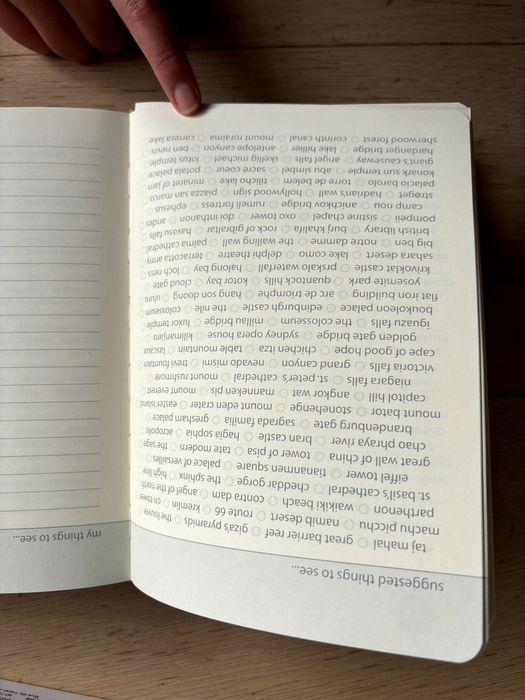 suggested things to see...
taj mahal ○ great barrier reef ○ giza's pyramids ○ the louvre ○
machu picchu ○ namib desert ○ route 66 ○ kremlin ○ cn tower ○
parthenon ○ waikiki beach ○ contra dam ○ angel of the north ○
st. basil's cathedral ○ cheddar gorge ○ the sphinx ○ high line ○
eiffel tower ○ tiananmen square ○ palace of versailles ○
great wall of china ○ tower of pisa ○ tate modern ○ the sage ○
chao phraya river ○ bran castle ○ hagia sophia ○ acropolis ○
brandenburg gate ○ sagrada família ○ gresham palace ○
mount bator ○ stonehenge ○ mount eden crater ○ easter island ○
capitol hill ○ angkor wat ○ manneken pis ○ mount everest ○
niagara falls ○ st. peter's cathedral ○ mount rushmore ○
victoria falls ○ grand canyon ○ nevado mismi ○ trevi fountain ○
cape of good hope ○ chichen itza ○ table mountain ○ lascaux ○
golden gate bridge ○ sydney opera house ○ kilimanjaro ○
iguazu falls ○ the colosseum ○ millau bridge ○ luxor temple ○
boukoleon palace ○ edinburgh castle ○ the nile ○ colosseum ○
flat iron building ○ arc de triomphe ○ hang son doong ○ uluru ○
yosemite park ○ quantock hills ○ kotor bay ○ cloud gate ○
krivoklat castle ○ prskalo waterfall ○ halong bay ○ loch ness ○
sahara desert ○ lake como ○ delphi theatre ○ terracotta army ○
big ben ○ notre damme ○ the wailing wall ○ palma cathedral ○
british library ○ burj khalifa ○ rock of gibraltar ○ havasu falls ○
pompeii ○ sistine chapel ○ oxo tower ○ doi inthanon ○ andes ○
camp nou ○ anichkov bridge ○ rumeli fortress ○ ephesus ○
strøget ○ hadrian's wall ○ hollywood sign ○ piazza san marco ○
palacio barolo ○ torre de belem ○ tilicho lake ○ minaret of jam ○
konark sun temple ○ abu simbel ○ sacré coeur ○ potala palace ○
giant's causeway ○ angel falls ○ skellig michael ○ lotus temple ○
hardanger bridge ○ lake hillier ○ antelope canyon ○ ben nevis ○
sherwood forest ○ corinth canal ○ mount roraima ○ carrera lake ○
my things to see...